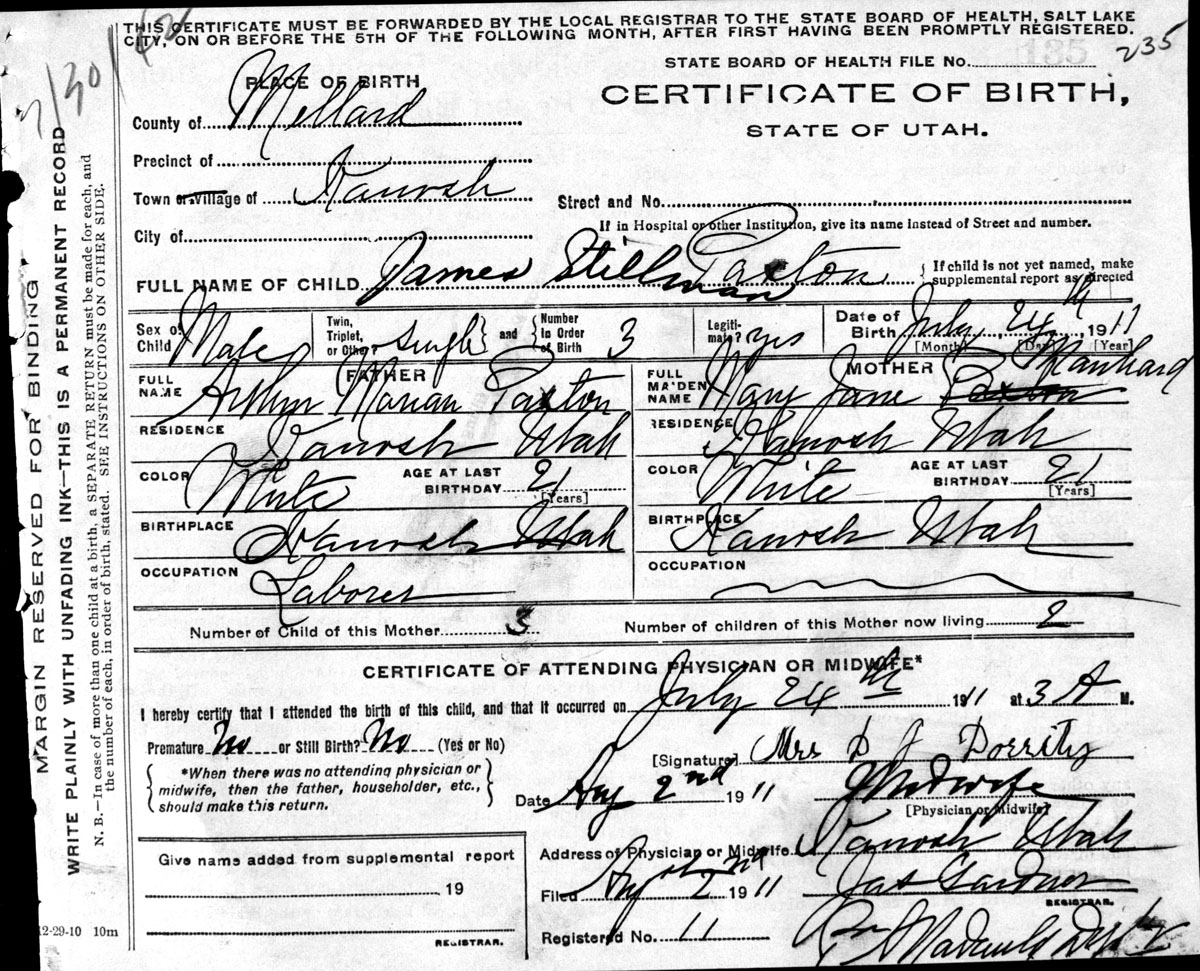 THIS CERTIFICATE MUST BE FORWARDED BY THE LOCAL REGISTRAR TO THE STATE BOARD OF HEALTH, SALT LAKE
CITY, ON OR BEFORE THE 5TH OF THE FOLLOWING MONTH, AFTER FIRST HAVING BEEN PROMPTLY REGISTERED.
STATE BOARD OF HEALTH FILE No. 235
PLACE OF BIRTH
CERTIFICATE OF BIRTH,
STATE OF UTAH.
County of Mellard
Precinct of
Town or Village of Kanosh
Street and No.
If in Hospital or other Institution, give its name instead of Street and number.
City of
FULL NAME OF CHILD James Stillman Paxton { If child is not yet named, make supplemental report as directed
Sex of Child Male Twin, Triplet, or Other? Single and Number In Order of Birth 3 Legitimate? yes Date of Birth July 24th, 1911
[Month] [Day] [Year]
FATHER
MOTHER
FULL NAME Arthur Marian Paxton
FULL MAIDEN NAME Mary Jane Paxton
RESIDENCE Kanosh Utah
RESIDENCE Kanosh Utah
COLOR White AGE AT LAST BIRTHDAY 21 [Years]
COLOR White AGE AT LAST BIRTHDAY 21 [Years]
BIRTHPLACE Kanosh Utah
BIRTHPLACE Kanosh Utah
OCCUPATION Laborer
OCCUPATION
Number of Child of this Mother 3 Number of children of this Mother now living 2
CERTIFICATE OF ATTENDING PHYSICIAN OR MIDWIFE*
I hereby certify that I attended the birth of this child, and that it occurred on July 24th 1911 at 3 A M.
Premature No or Still Birth? No (Yes or No)
[Signature] Mrs D J Dorrity
*When there was no attending physician or
midwife, then the father, householder, etc.,
should make this return.
Date Aug 2nd 1911 Midwife
[Physician or Midwife]
Address of Physician or Midwife Kanosh Utah
Filed Aug 2nd 1911 Jas Gardner
REGISTRAR.
Registered No. 11
Give name added from supplemental report
19
REGISTRAR.
12-29-10 10m
MARGIN RESERVED FOR BINDING
WRITE PLAINLY WITH UNFADING INK—THIS IS A PERMANENT RECORD
N. B.—In case of more than one child at a birth, a SEPARATE RETURN must be made for each, and
the number of each, in order of birth, stated. SEE INSTRUCTIONS ON OTHER SIDE.